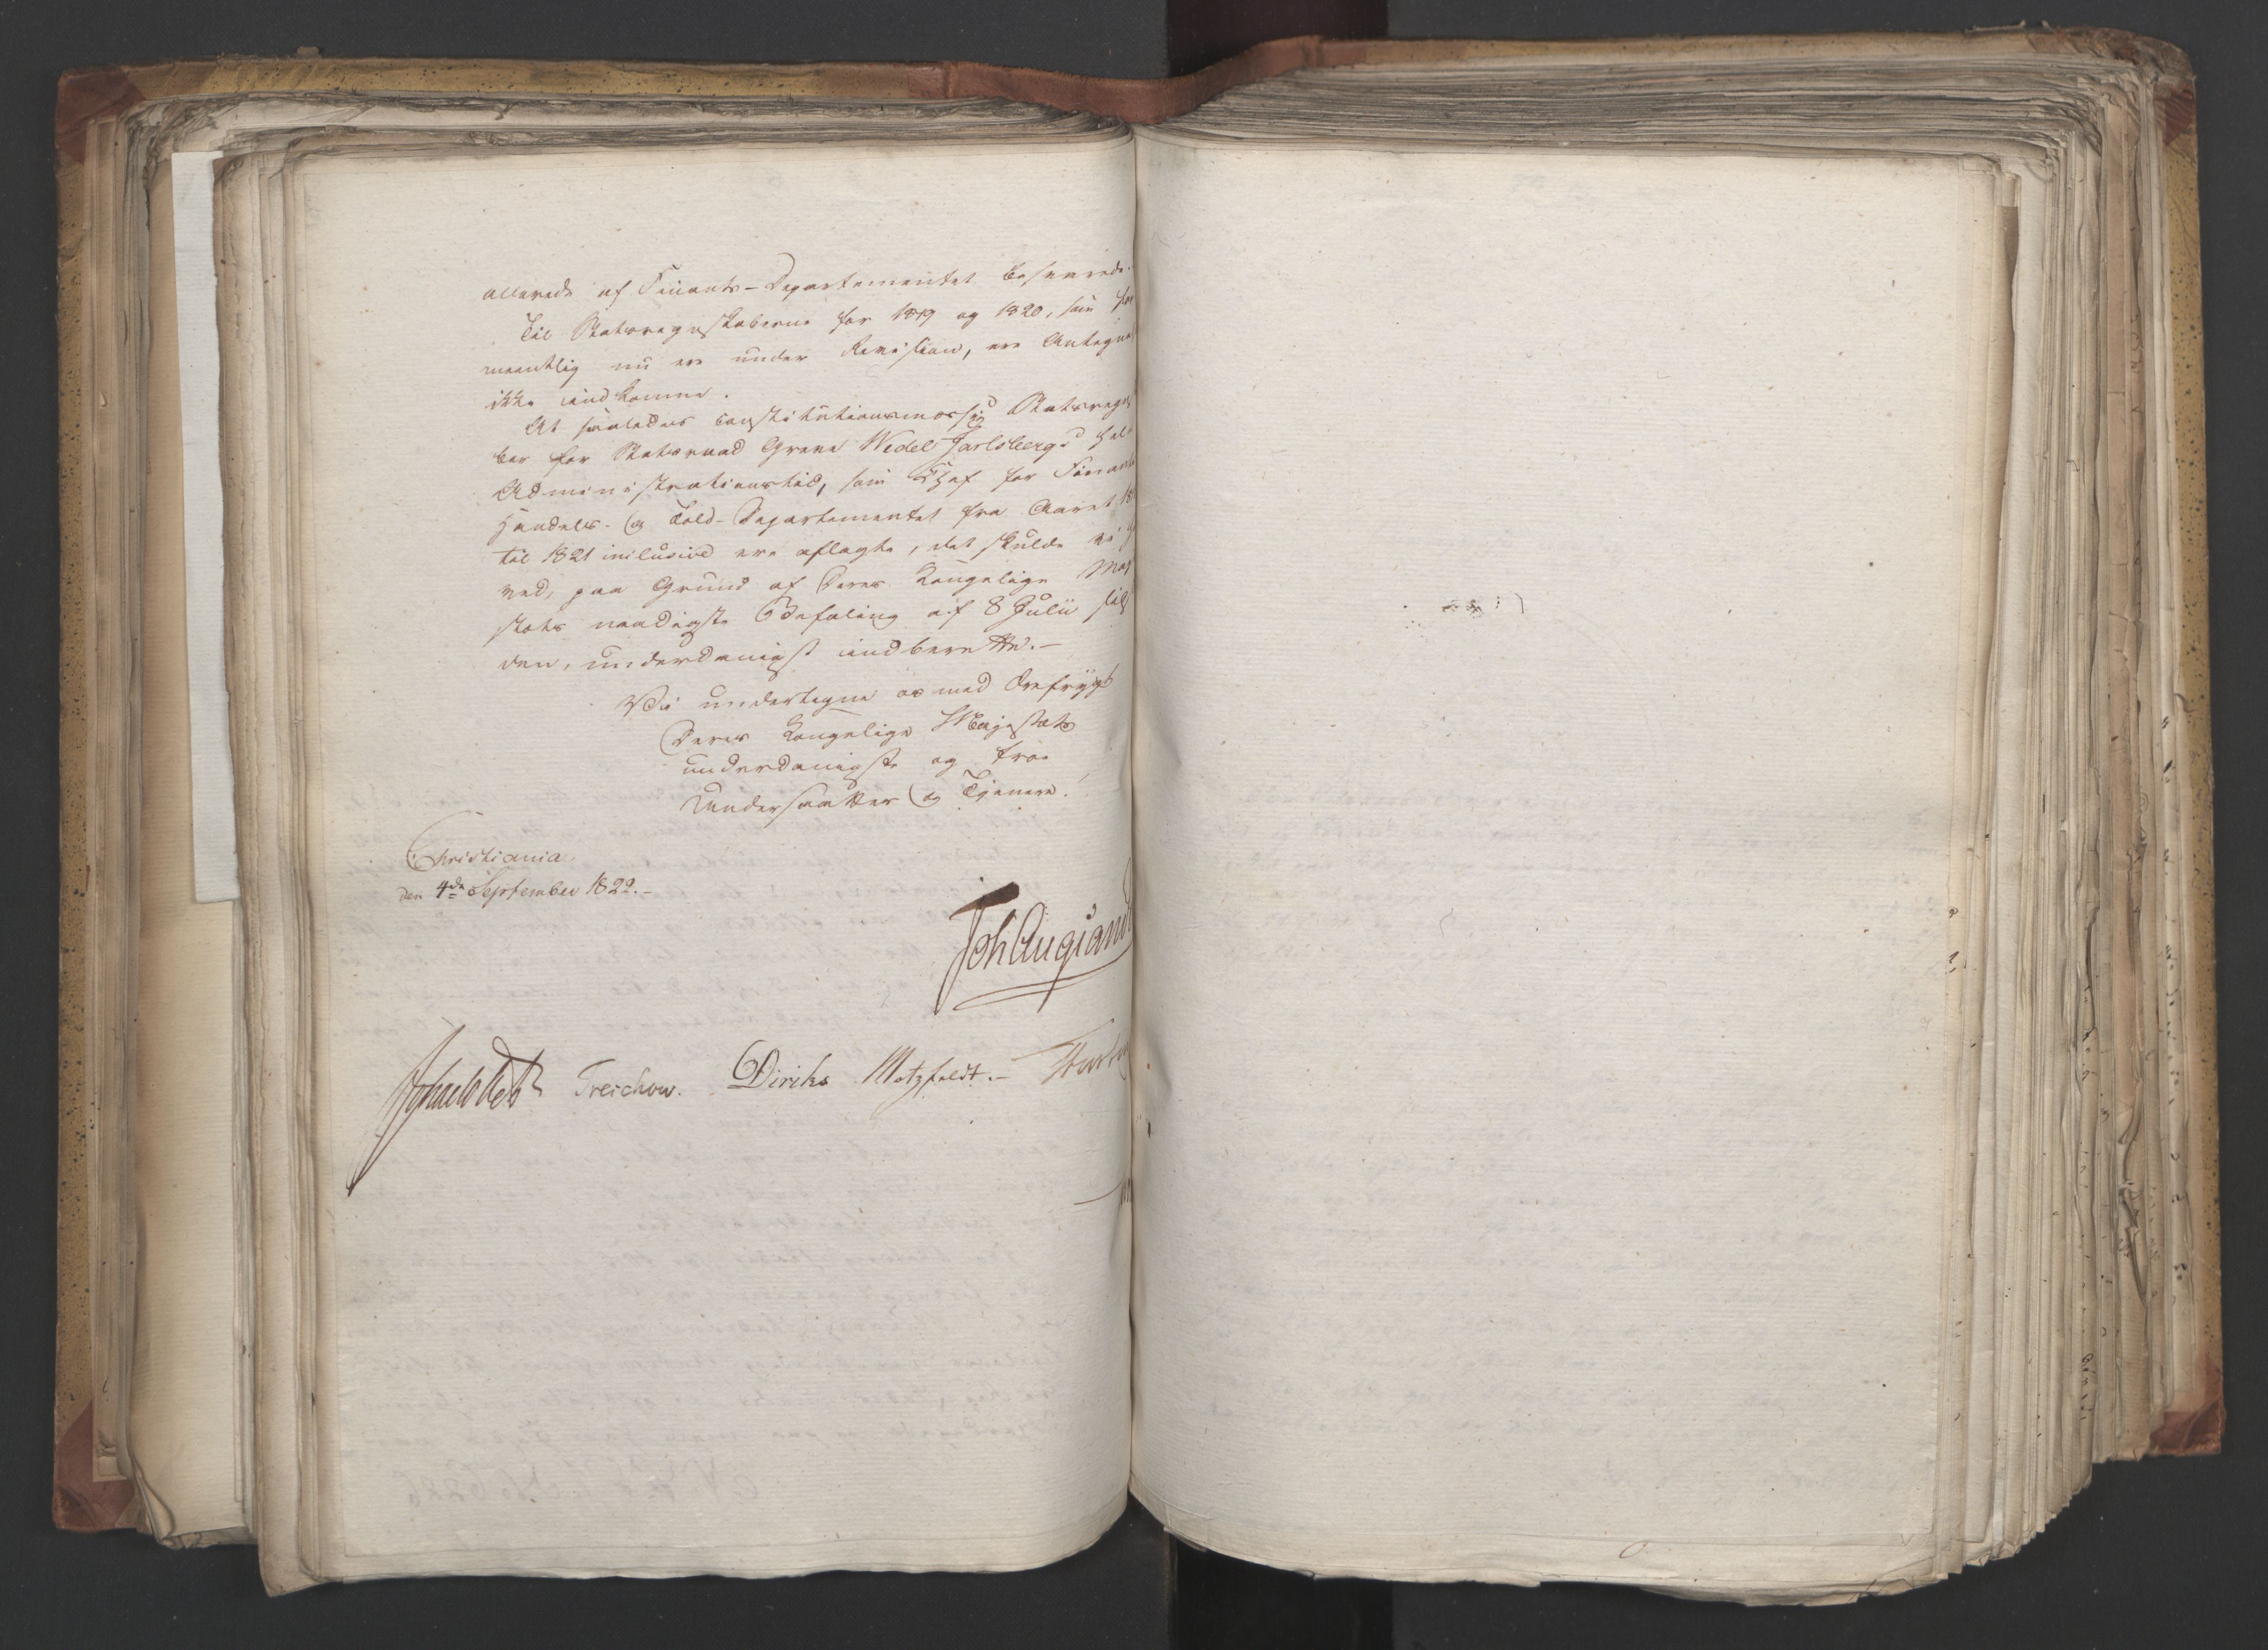 allerede af Finants-Departementet besvarede.
Til Statsregnskaberne for 1819 og 1820, som for
meentlig nu ere under Revision, ere Antegnel
ikke indkomne.
At saaledes constitutionsmæssig Statsregns
ber for Statsraad Greve Wedel Jarlsbergs hele
Administrationstid, som Chef for Finants
Handels- og Told-Departementet fra Aaret 18
til 1821 inclusive ere aflagte, det skulde vi h
ved, paa Grund af Deres Kongelige Maj
stæts naadigste Befaling af 8 Julii sids
den, underdanigst indberette.-
Vi undertegne os med Ærefrygt
Deres Kongelige Majestæts
underdanigste og troe
Undersaatter og Tjenere.
Christiania
den 4de September 1822.-
Joh Aug Sand
Treschow. Diriks Motzfeldt.-